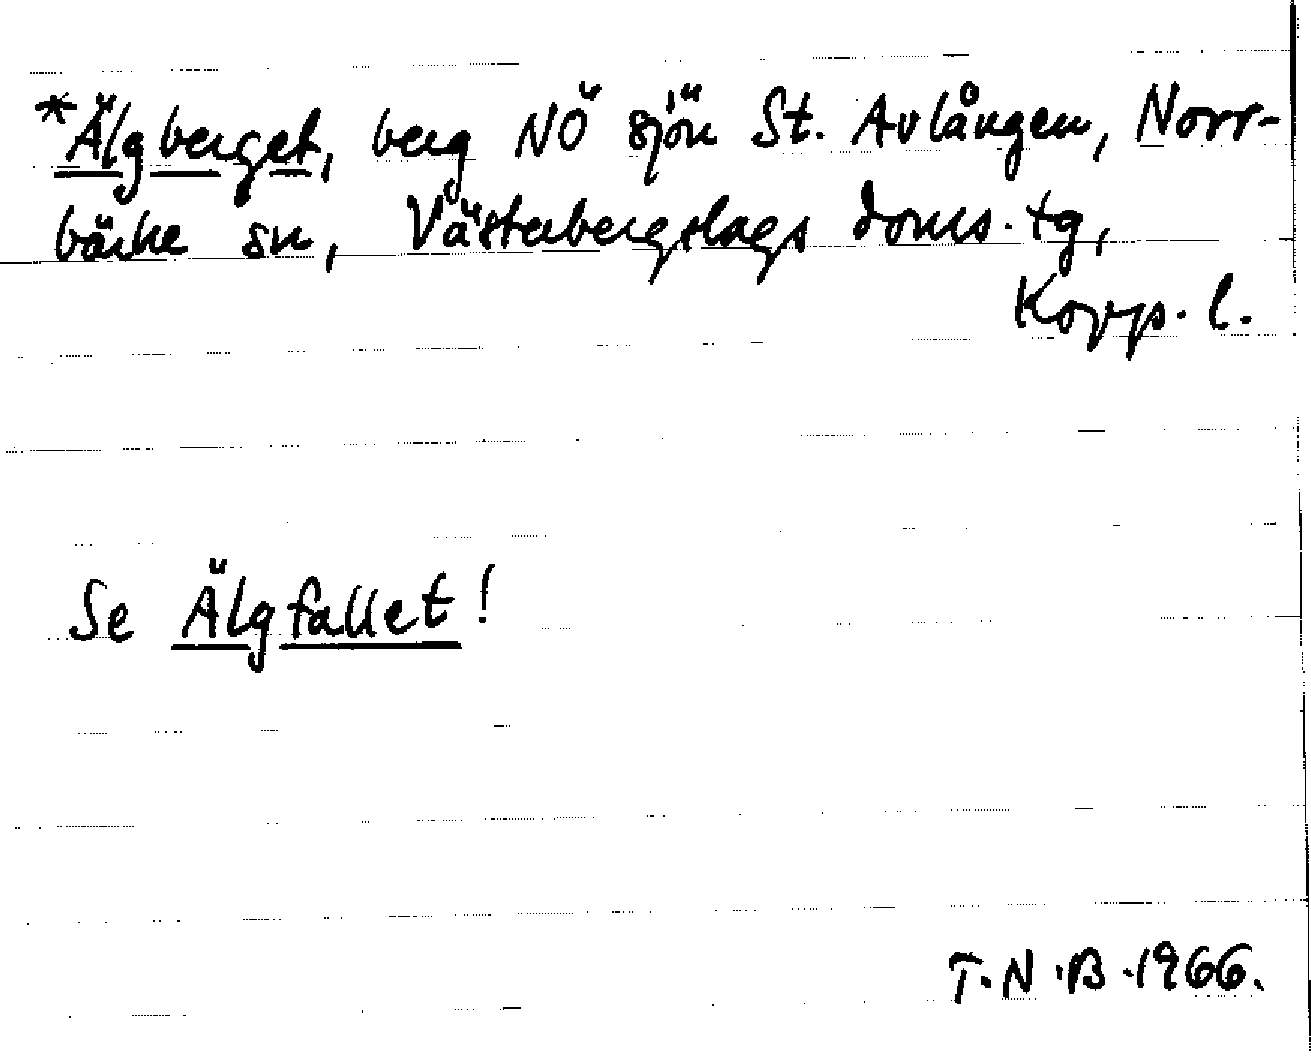 *Älgberget, berg NÖ sjön St. Avlången, Norr-
bärke sn, Västerbergslags doms. tg,
Kopp. l.
Se Älgfallet!
T.N.B.1966.